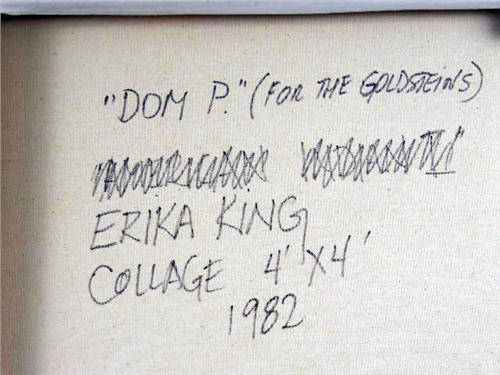 "DOM P." (FOR THE GOLDSTEINS)
ERIKA KING
COLLAGE 4' X 4'
1982